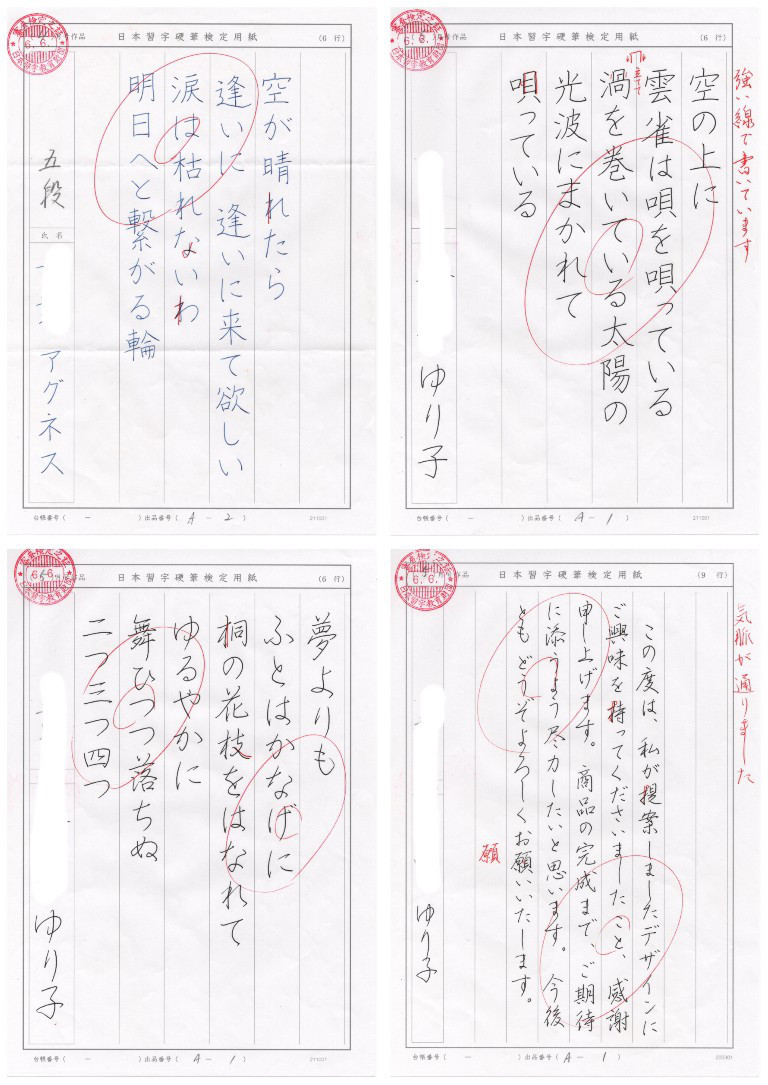 日本習字硬筆検定用紙
(6 行)
空が晴れたら
逢いに 逢いに来て欲しい
涙は枯れないわ
明日へと繋がる輪
五段
氏名
アグネス
台帳番号( － )出品番号( A－2 )
211001
6.6.
日本習字教育財団
日本習字硬筆検定用紙
(6 行)
強い線で書いています
空の上に
雲雀は唄を唄っている
渦を巻いている太陽の
立てて
光波にまかれて
唄っている
ゆり子
台帳番号( － )出品番号( A－1 )
211001
6.6.
日本習字教育財団
日本習字硬筆検定用紙
(6 行)
夢よりも
ふとはかなげに
桐の花枝をはなれて
ゆるやかに
舞ひつつ落ちぬ
二つ三つ四つ
ゆり子
台帳番号( － )出品番号( A－1 )
211001
6.6.
日本習字教育財団
日本習字硬筆検定用紙
(9 行)
気脈が通りました
この度は、私が提案しましたデザインに
ご興味を持ってくださいましたこと、感謝
申し上げます。商品の完成まで、ご期待
に添うよう尽力したいと思います。 今後
ともどうぞよろしくお願いいたします。
願
ゆり子
台帳番号( － )出品番号( A－1 )
6.6.
日本習字教育財団